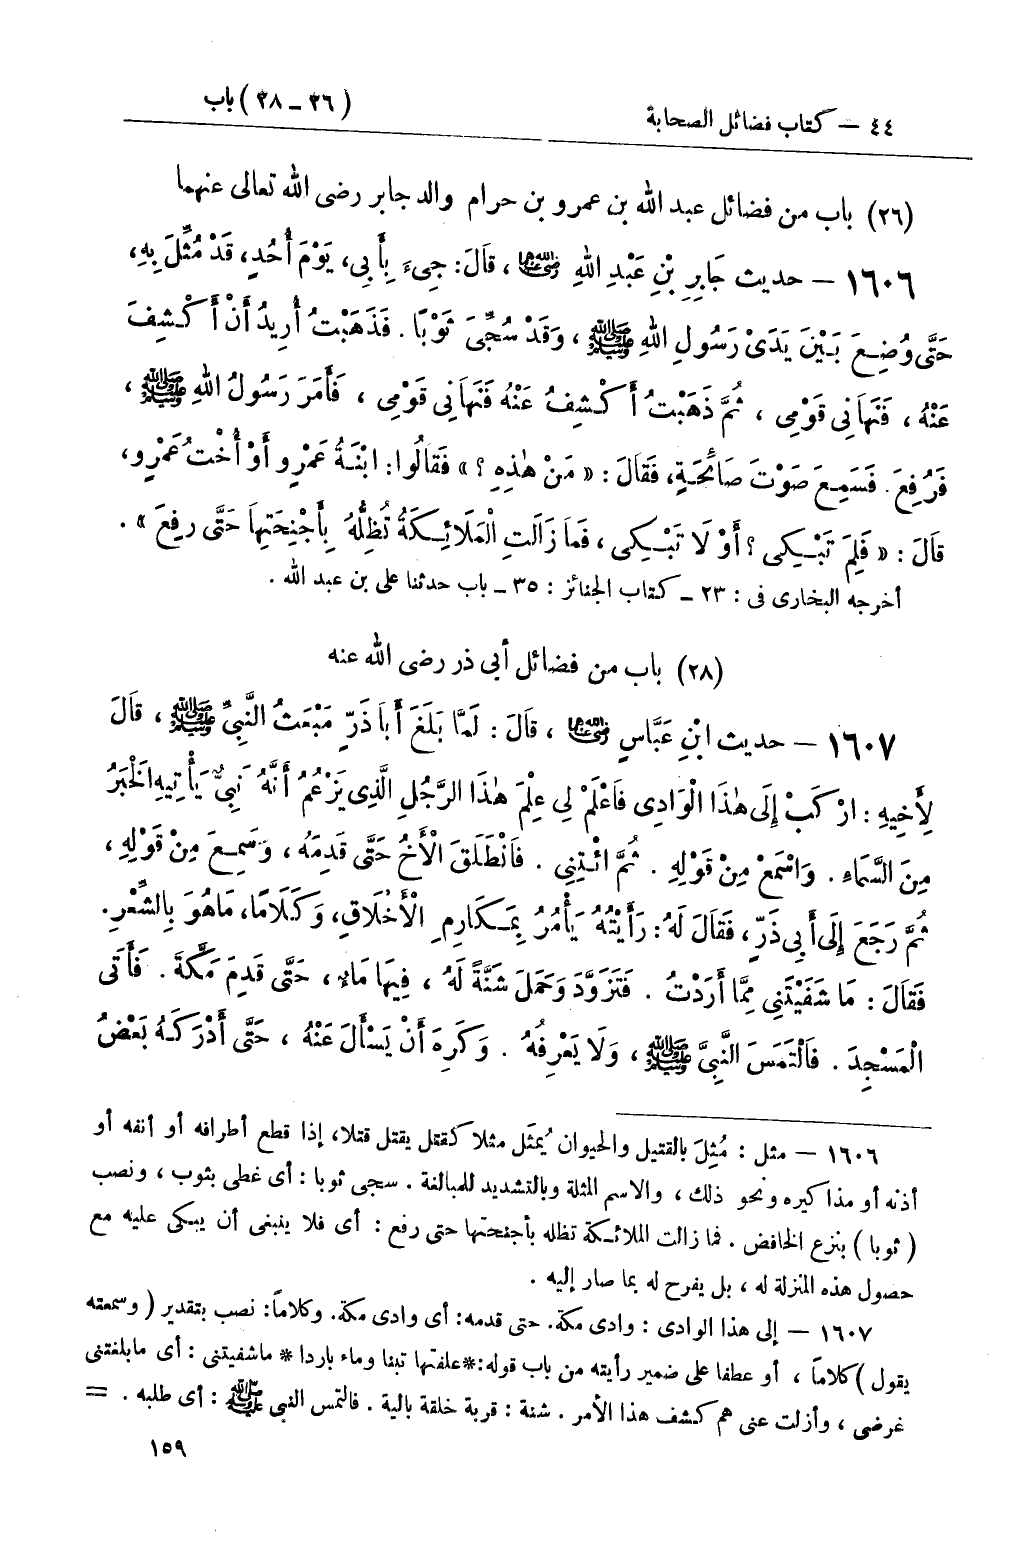 ٤٤ – كتاب فضائل الصحابة
(٢٦ – ٢٨) باب
(٢٦) باب من فضائل عبد الله بن عمرو بن حرام والد جابر رضى الله تعالى عنهما
١٦٠٦ – حديث جَابِرِ بْنِ عَبْدِ اللهِ رضي الله عنهما ، قَالَ: جِىءَ بِأَبِى، يَوْمَ أُحُدٍ، قَدْ مُثِّلَ بِهِ،
حَتَّى وُضِعَ بَيْنَ يَدَىْ رَسُولِ اللهِ ﷺ ، وَقَدْ سُجِّىَ ثَوْبًا . فَذَهَبْتُ أُرِيدُ أَنْ أَكْشِفَ
عَنْهُ ، فَنَهَانِى قَوْمِى ، ثُمَّ ذَهَبْتُ أَكْشِفُ عَنْهُ فَنَهَانِى قَوْمِى ، فَأَمَرَ رَسُولُ اللهِ ﷺ ،
فَرُفِعَ . فَسَمِعَ صَوْتَ صَائِحَةٍ، فَقَالَ : « مَنْ هٰذِهِ ؟ » فَقَالُوا: ابْنَةُ عَمْرٍو أَوْ أُخْتُ عَمْرٍو،
قَالَ : « فَلِمَ تَبْكِى ؟ أَوْ لَا تَبْكِى ، فَمَا زَالَتِ الْمَلَائِكَةُ تُظِلُّهُ بِأَجْنِحَتِهَا حَتَّى رفِعَ » .
أخرجه البخارى فى : ٢٣ – كتاب الجنائز : ٣٥ – باب حدثنا على بن عبد الله .
(٢٨) باب من فضائل أبى ذر رضى الله عنه
١٦٠٧ – حديث ابْنِ عَبَّاسٍ رضي الله عنهما ، قَالَ : لَمَّا بَلَغَ أَبَا ذَرٍّ مَبْعَثُ النَّبِىِّ ﷺ ، قَالَ
لِأَخِيهِ : ارْكَبْ إِلَى هٰذَا الْوَادِى فَاعْلَمْ لِى عِلْمَ هٰذَا الرَّجُلِ الَّذِى يَزْعُمُ أَنَّهُ نَبِىٌّ يَأْتِيهِ الْخَبَرُ
مِنَ السَّمَاءِ . وَاسْمَعْ مِنْ قَوْلِهِ . ثُمَّ ائْتِنِى . فَانْطَلَقَ الْأَخُ حَتَّى قَدِمَهُ ، وَسَمِعَ مِنْ قَوْلِهِ ،
ثُمَّ رَجَعَ إِلَى أَبِى ذَرٍّ ، فَقَالَ لَهُ: رَأَيْتُهُ يَأْمُرُ بِمَكَارِمِ الْأَخْلَاقِ، وَكَلَامًا، مَاهُوَ بِالشِّعْرِ.
فَقَالَ : مَا شَفَيْتَنِى مِمَّا أَرَدْتُ . فَتَزَوَّدَ وَحَمَلَ شَنَّةً لَهُ ، فِيهَا مَاءٍ ، حَتَّى قَدِمَ مَكَّةَ . فَأَتَى
الْمَسْجِدَ . فَالْتَمَسَ النَّبِىَّ ﷺ ، وَلَا يَعْرِفُهُ . وَكَرِهَ أَنْ يَسْأَلَ عَنْهُ ، حَتَّى أَدْرَكَهُ بَعْضُ
١٦٠٦ – مثل : مُثِلَ بالقتيل والحيوان يُمثَل مثلا كقتل يقتل قتلا، إذا قطع أطرافه أو أنفه أو
أذنه أو مذاكيره ونحو ذلك ، والاسم المثلة وبالتشديد للمبالغة . سجى ثوبا : أى غطى بثوب ، ونصب
( ثوبا ) بنزع الخافض . فما زالت الملائكة تظله بأجنحتها حتى رفع : أى فلا ينبغى أن يبكى عليه مع
حصول هذه المنزلة له ، بل يفرح له بما صار إليه .
١٦٠٧ – إلى هذا الوادى : وادى مكة. حتى قدمه: أى وادى مكة. وكلاماً: نصب بتقدير ( وسمعته
يقول ) كلاماً ، أو عطفا على ضمير رأيته من باب قوله:*علفتها تبنا وماء باردا* ماشفيتنى : أى مابلغتنى
غرضى ، وأزلت عنى هم كشف هذا الأمر . شنة : قربة خلقة بالية . فالتمس النبى ﷺ : أى طلبه . =
١٥٩